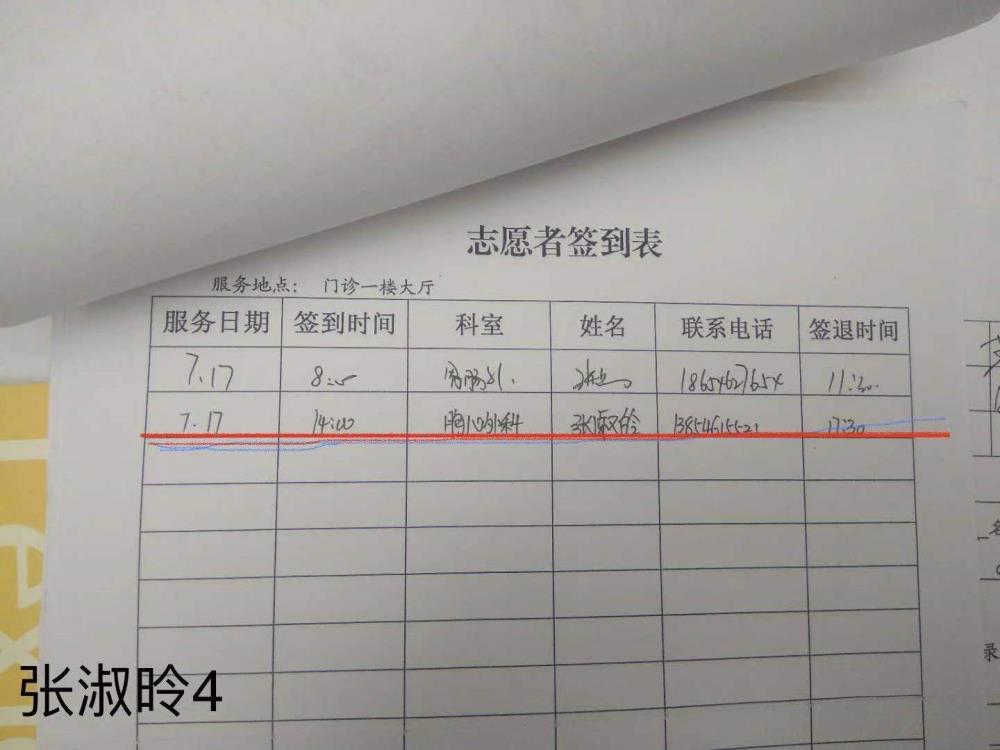 志愿者签到表
服务地点： 门诊一楼大厅
服务日期 签到时间 科室 姓名 联系电话 签退时间
7.17 8:00 18654627654 11:30
7.17 14:00 胸心外科 张淑昤 13854615521 17:30
张淑昤4